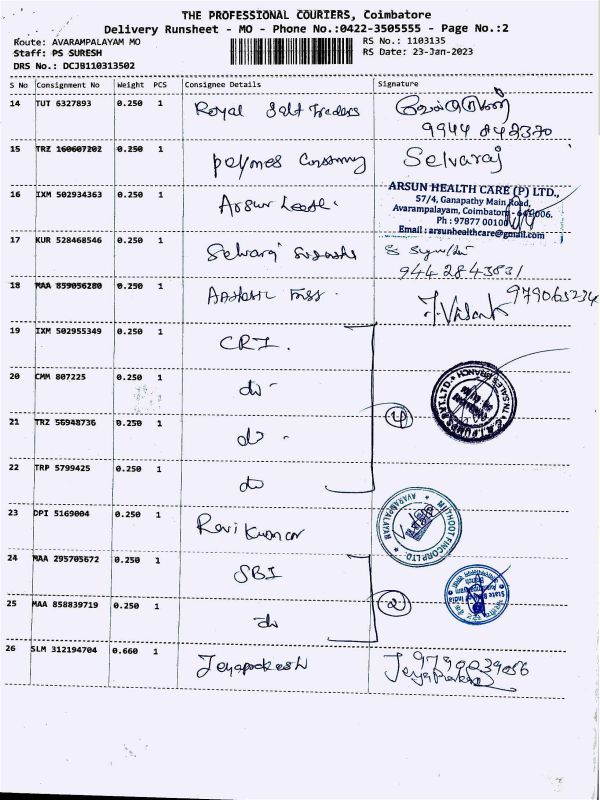 THE PROFESSIONAL COURIERS, Coimbatore
Delivery Runsheet - MO - Phone No.:0422-3505555 - Page No.:2
Route: AVARAMPALAYAM MO
Staff: PS SURESH
DRS No.: DCJB110313502
RS No.: 1103135
RS Date: 23-Jan-2023
S No Consignment No Weight PCS Consignee Details Signature
14 TUT 6327893 0.250 1 Royal Salt Traders
9944 842330
15 TRZ 160607202 0.250 1 Selvaraj
16 IXM 502934363 0.250 1 Arsun
ARSUN HEALTH CARE (P) LTD.,
57/4, Ganapathy Main Road,
Avarampalayam, Coimbatore - 641006.
Ph : 97877 00100
Email : arsunhealthcare@gmail.com
17 KUR 528468546 0.250 1 Selvaraj
9442843831
18 MAA 859056280 0.250 1
979065234
19 IXM 502955349 0.250 1 CRI.
20 CMM 807225 0.250 1 do -
21 TRZ 56948736 0.250 1 do -
22 TRP 5799425 0.250 1 do
4
23 DPI 5169004 0.250 1 Ravi Kumar
MUTHOOT FINCORP LTD.
AVARAMPALAYAM
24 MAA 295705672 0.250 1 SBI
State Bank of India
25 MAA 858839719 0.250 1 do
2
26 SLM 312194704 0.660 1 Jeyaprakash
9790039056
Jeyaprakash